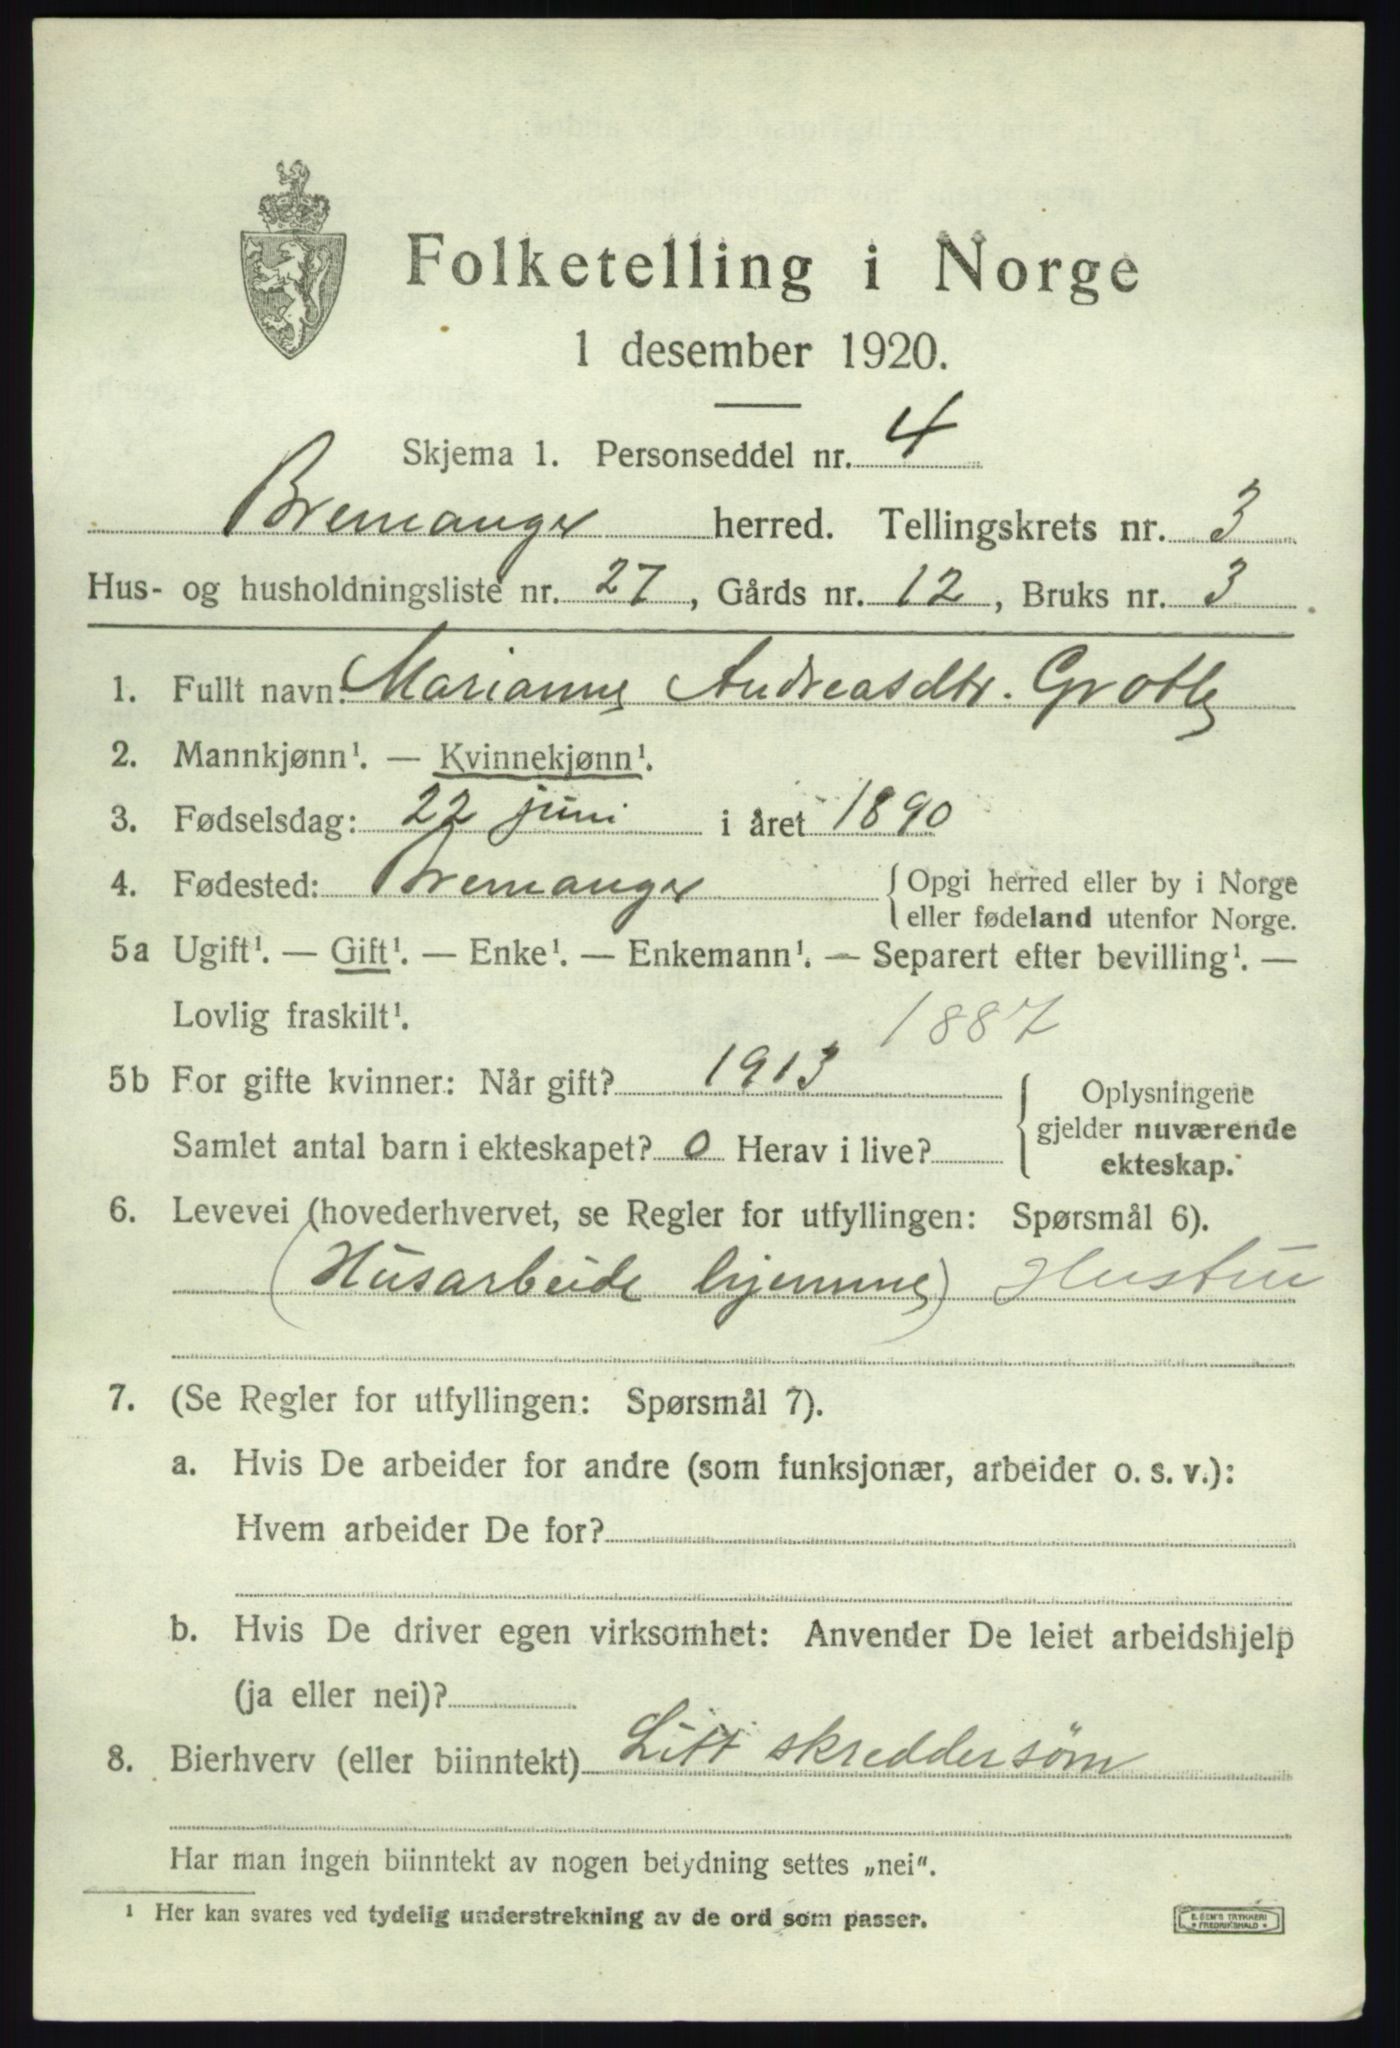 Folketelling i Norge
1 desember 1920.
Skjema 1. Personseddel nr. 4
Bremanger herred. Tellingskrets nr. 3
Hus- og husholdningsliste nr. 27, Gårds nr. 12, Bruks nr. 3
1. Fullt navn: Marianne Andreasdtr. Grotle
2. Mannkjønn¹. — Kvinnekjønn¹.
3. Fødselsdag: 22 juni i året 1890
4. Fødested: Bremanger { Opgi herred eller by i Norge
eller fødeland utenfor Norge.
5a Ugift¹. — Gift¹. — Enke¹. — Enkemann¹. — Separert efter bevilling¹. —
Lovlig fraskilt¹. 1887
5b For gifte kvinner: Når gift? 1913
Samlet antal barn i ekteskapet? 0 Herav i live?
{ Oplysningene
gjelder nuværende
ekteskap.
6. Levevei (hovederhvervet, se Regler for utfyllingen: Spørsmål 6).
(Husarbeide hjemme) Hustru
7. (Se Regler for utfyllingen: Spørsmål 7).
a. Hvis De arbeider for andre (som funksjonær, arbeider o. s. v.):
Hvem arbeider De for?
b. Hvis De driver egen virksomhet: Anvender De leiet arbeidshjelp
(ja eller nei)?
8. Bierhverv (eller biinntekt) Litt skreddersøm
Har man ingen biinntekt av nogen betydning settes „nei".
¹ Her kan svares ved tydelig understrekning av de ord som passer.
E. SEM'S TRYKKERI
FREDRIKSHALD